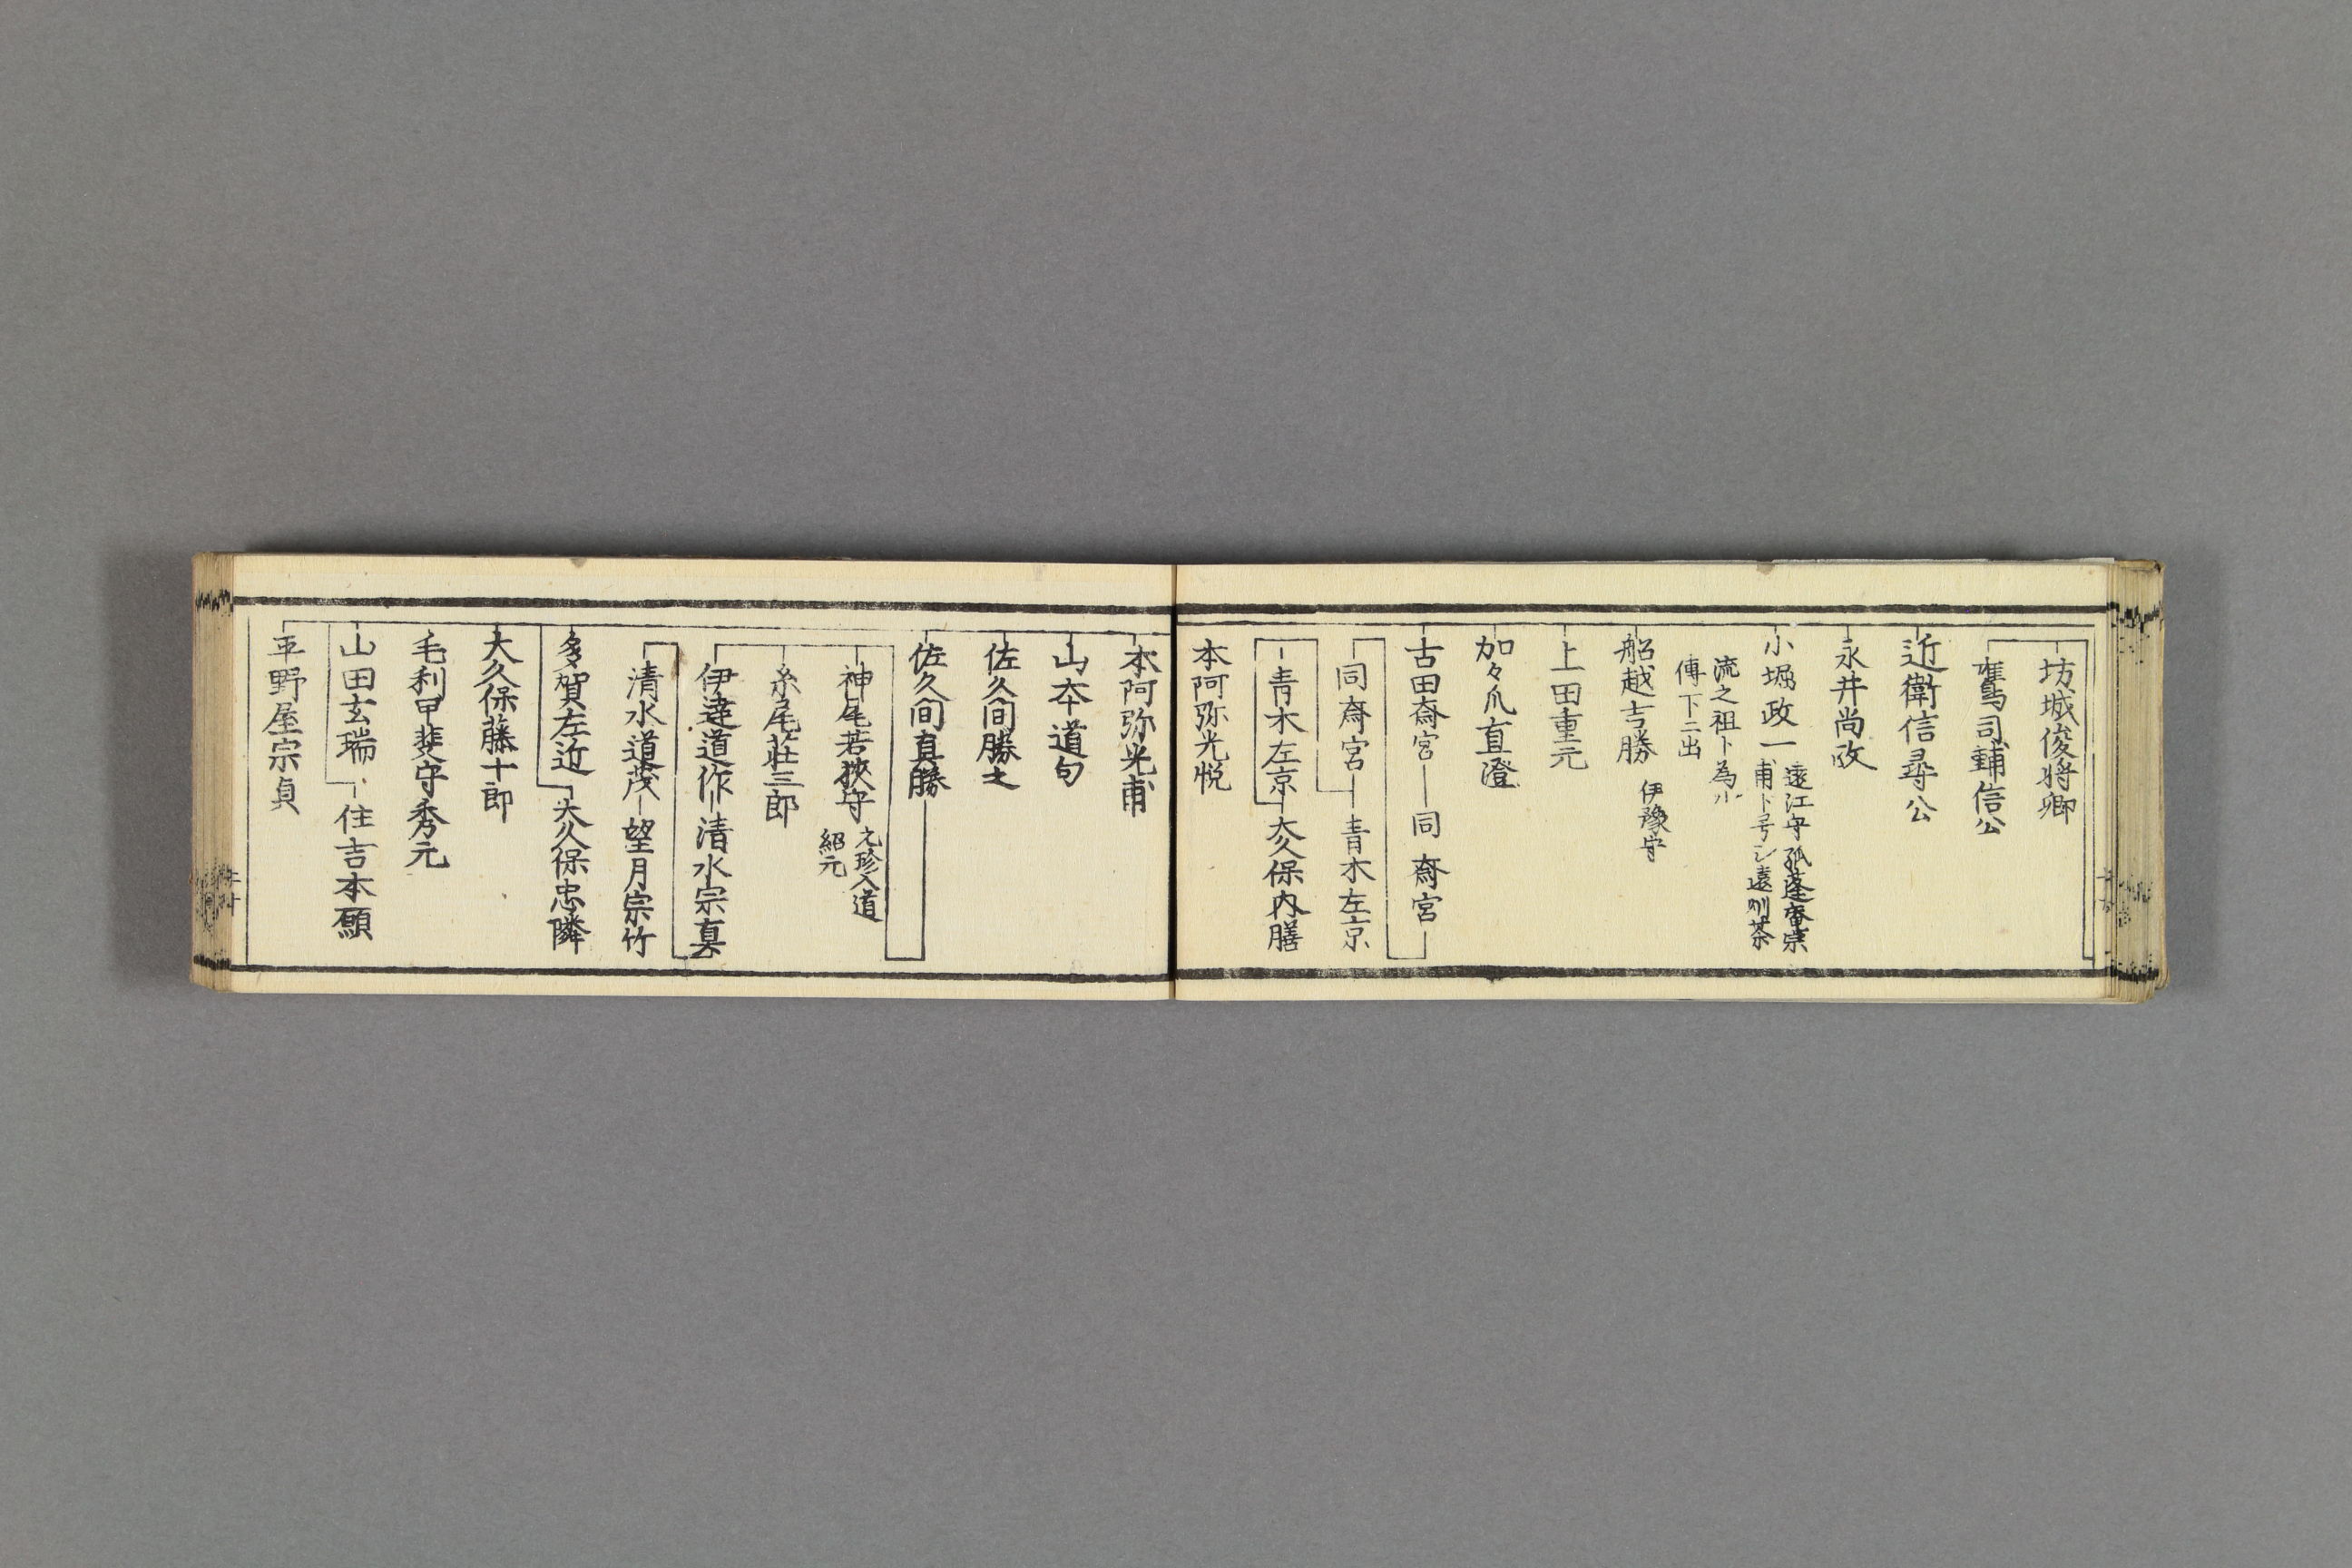 坊城俊将卿
鷹司輔信公
近衛信尋公
永井尚政
小堀政一
遠江守孤蓬菴宗
甫ト号シ遠州茶
流之祖ト為ル
傳下ニ出
船越吉勝 伊豫守
上田重元
加々爪直澄
古田斎宮 同 斎宮
同斎宮 青木左京
青木左京 大久保内膳
本阿弥光悦
本阿弥光甫
山本道句
佐久間勝之
佐久間真勝
神尾若狭守
元珍入道
紹元
糸尾荘三郎
伊達道作 清水宗真
清水道茂 望月宗竹
多賀左近 大久保忠隣
大久保藤十郎
毛利甲斐守秀元
山田玄瑞 住吉本願
平野屋宗貞